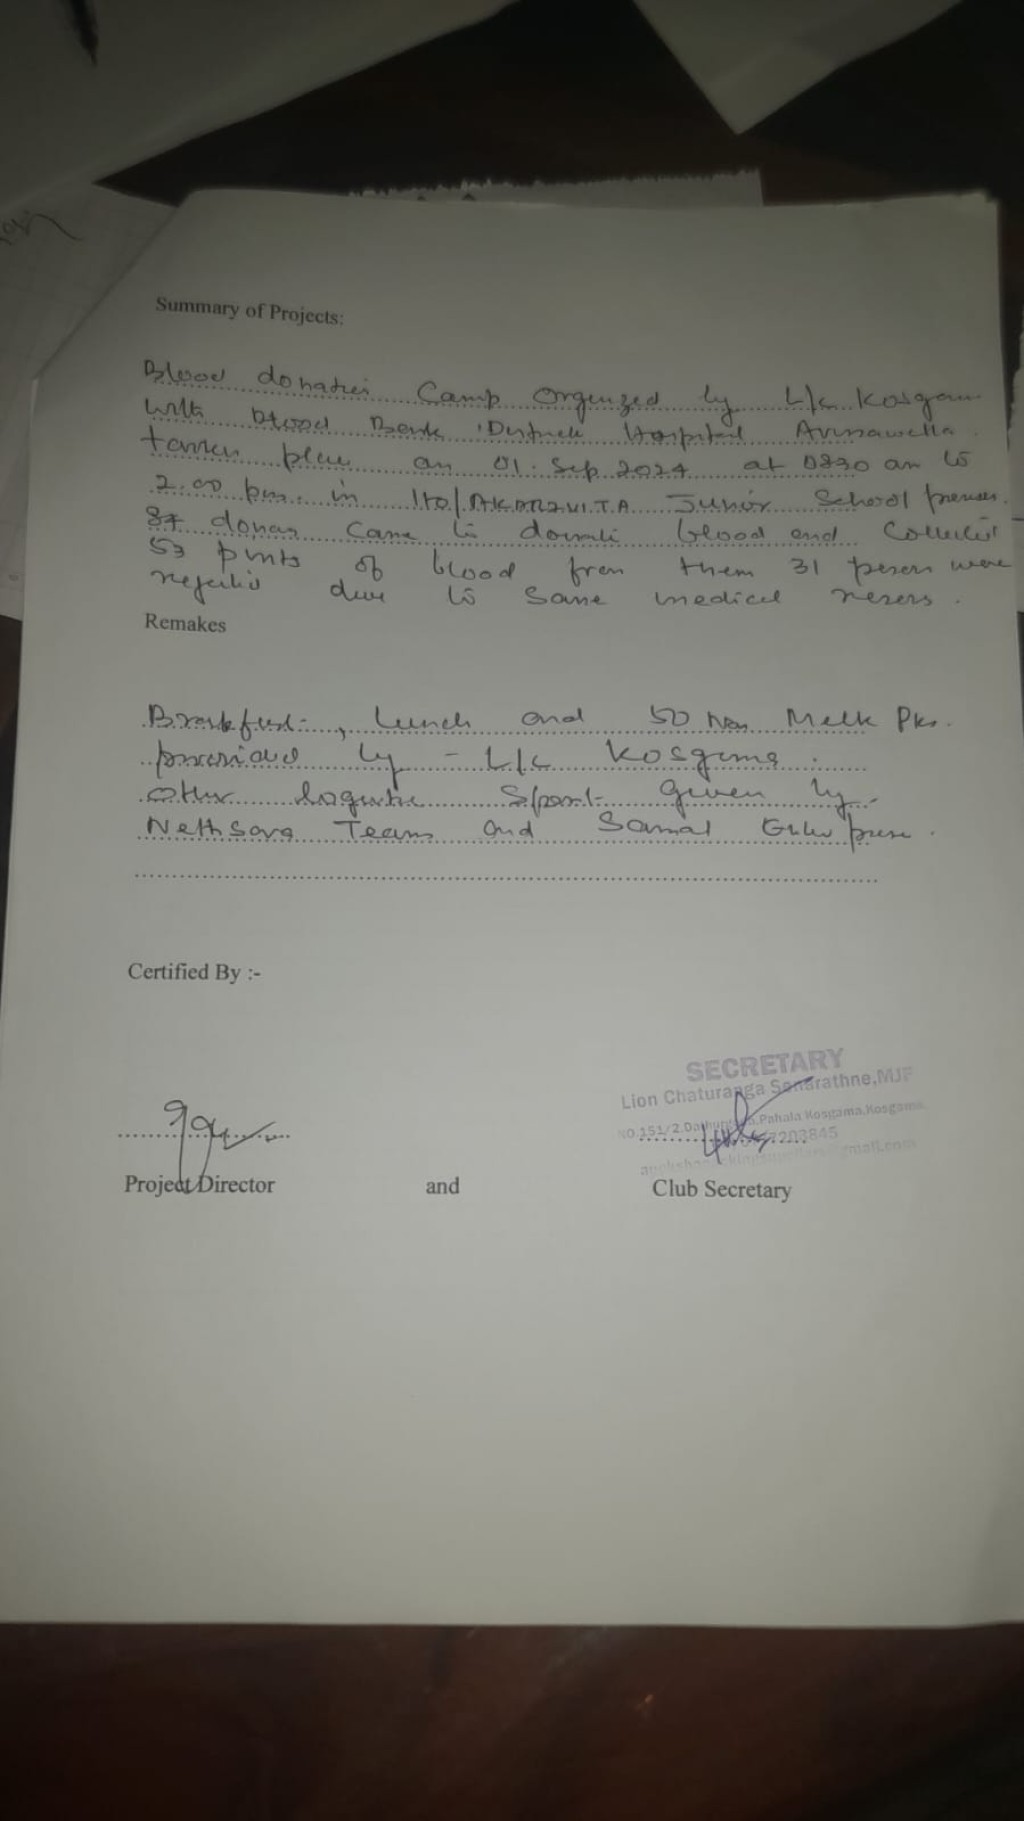 Summary of Projects:
Blood donation Camp Orgenized by L/c Kosgama
With Blood Bank District Hospital Avissawella
taken place on 01. Sep. 2024 at 0830 am to
2.00 pm. in Junior School premises.
donors came to donate blood and Collected
53 pints of blood from them 31 person were
due to some medical
Remakes
Breakfast, Lunch and 50 Nos Milk Pks.
provided by - L/c Kosgama.
Other logistic given by
Nethsara Team and
Certified By :-
SECRETARY
Lion Chaturanga Senarathne,MJF
NO.151/2. Pahala Kosgama,Kosgama
203845
Project Director and Club Secretary